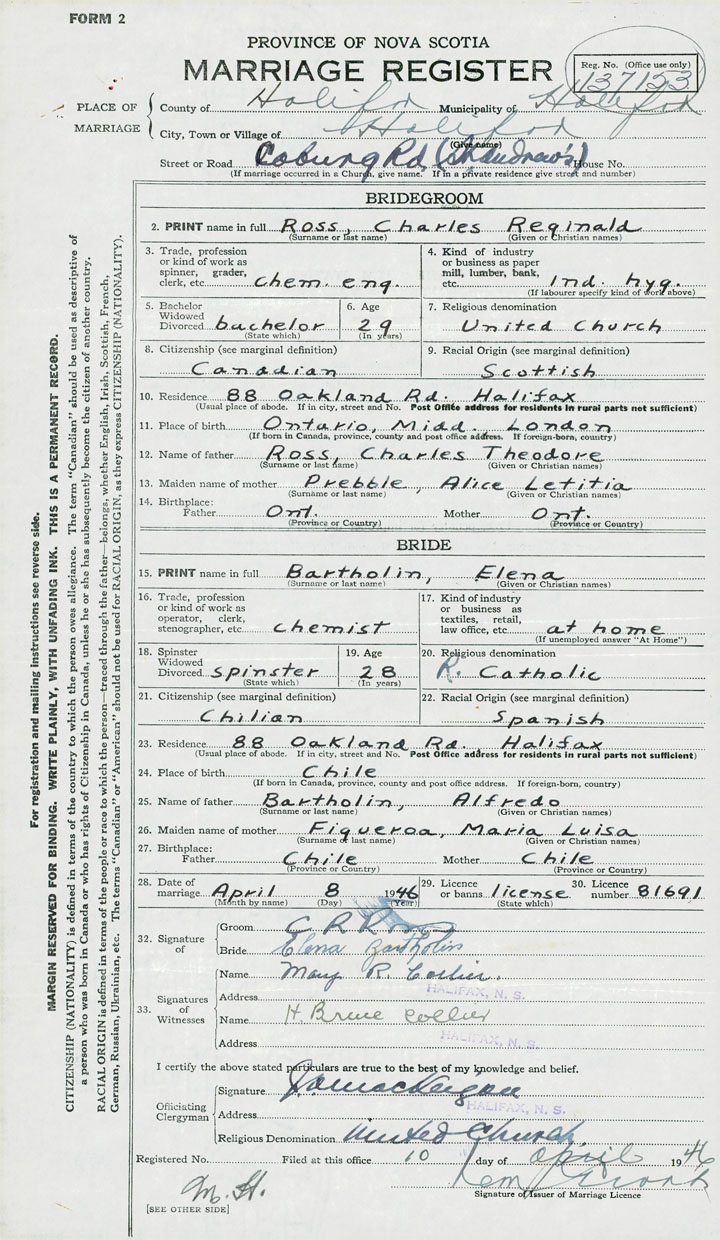 FORM 2
PROVINCE OF NOVA SCOTIA
MARRIAGE REGISTER
Reg. No. (Office use only)
137153
PLACE OF MARRIAGE
County of Halifax Municipality of Halifax
City, Town or Village of Halifax
(Give name)
Street or Road Coburg Rd, (St. Andrew's) House No.
(If marriage occurred in a Church, give name. If in a private residence give street and number)
BRIDEGROOM
2. PRINT name in full Ross, Charles Reginald
(Surname or last name) (Given or Christian names)
3. Trade, profession or kind of work as spinner, grader, clerk, etc. chem. eng.
4. Kind of industry or business as paper mill, lumber, bank, etc. Ind. hyg.
(If labourer specify kind of work above)
5. Bachelor Widowed Divorced bachelor
(State which)
6. Age 29
(In years)
7. Religious denomination
United Church
8. Citizenship (see marginal definition)
Canadian
9. Racial Origin (see marginal definition)
Scottish
10. Residence 88 Oakland Rd. Halifax
(Usual place of abode. If in city, street and No. Post Office address for residents in rural parts not sufficient)
11. Place of birth Ontario, Midd. London
(If born in Canada, province, county and post office address. If foreign-born, country)
12. Name of father Ross, Charles Theodore
(Surname or last name) (Given or Christian names)
13. Maiden name of mother Prebble, Alice Letitia
(Surname or last name) (Given or Christian names)
14. Birthplace:
Father Ont. Mother Ont.
(Province or Country) (Province or Country)
BRIDE
15. PRINT name in full Bartholin, Elena
(Surname or last name) (Given or Christian names)
16. Trade, profession or kind of work as operator, clerk, stenographer, etc. chemist
17. Kind of industry or business as textiles, retail, law office, etc. at home
(If unemployed answer "At Home")
18. Spinster Widowed Divorced spinster
(State which)
19. Age 28
(In years)
20. Religious denomination
R. Catholic
21. Citizenship (see marginal definition)
Chilian
22. Racial Origin (see marginal definition)
Spanish
23. Residence 88 Oakland Rd., Halifax
(Usual place of abode. If in city, street and No. Post Office address for residents in rural parts not sufficient)
24. Place of birth Chile
(If born in Canada, province, county and post office address. If foreign-born, country)
25. Name of father Bartholin, Alfredo
(Surname or last name) (Given or Christian names)
26. Maiden name of mother Figueroa, Maria Luisa
(Surname or last name) (Given or Christian names)
27. Birthplace:
Father Chile Mother Chile
(Province or Country) (Province or Country)
28. Date of marriage April 8 1946
(Month by name) (Day) (Year)
29. Licence or banns license
(State which)
30. Licence number 81691
32. Signature of
Groom C R Ross
Bride Elena Bartholin
33. Signatures of Witnesses
Name Mary R. Collier.
Address HALIFAX, N. S.
Name H. Bruce Collier
Address HALIFAX, N. S.
I certify the above stated particulars are true to the best of my knowledge and belief.
Officiating Clergyman
Signature
Address HALIFAX, N. S.
Religious Denomination United Church
Registered No. Filed at this office 10 day of April 1946
Signature of Issuer of Marriage Licence
M. H.
[SEE OTHER SIDE]
For registration and mailing instructions see reverse side.
MARGIN RESERVED FOR BINDING. WRITE PLAINLY, WITH UNFADING INK. THIS IS A PERMANENT RECORD.
CITIZENSHIP (NATIONALITY) is defined in terms of the country to which the person owes allegiance. The term "Canadian" should be used as descriptive of
a person who was born in Canada or who has rights of Citizenship in Canada, unless he or she has subsequently become the citizen of another country.
RACIAL ORIGIN is defined in terms of the people or race to which the person—traced through the father—belongs, whether English, Irish, Scottish, French,
German, Russian, Ukrainian, etc. The terms "Canadian" or "American" should not be used for RACIAL ORIGIN, as they express CITIZENSHIP (NATIONALITY).